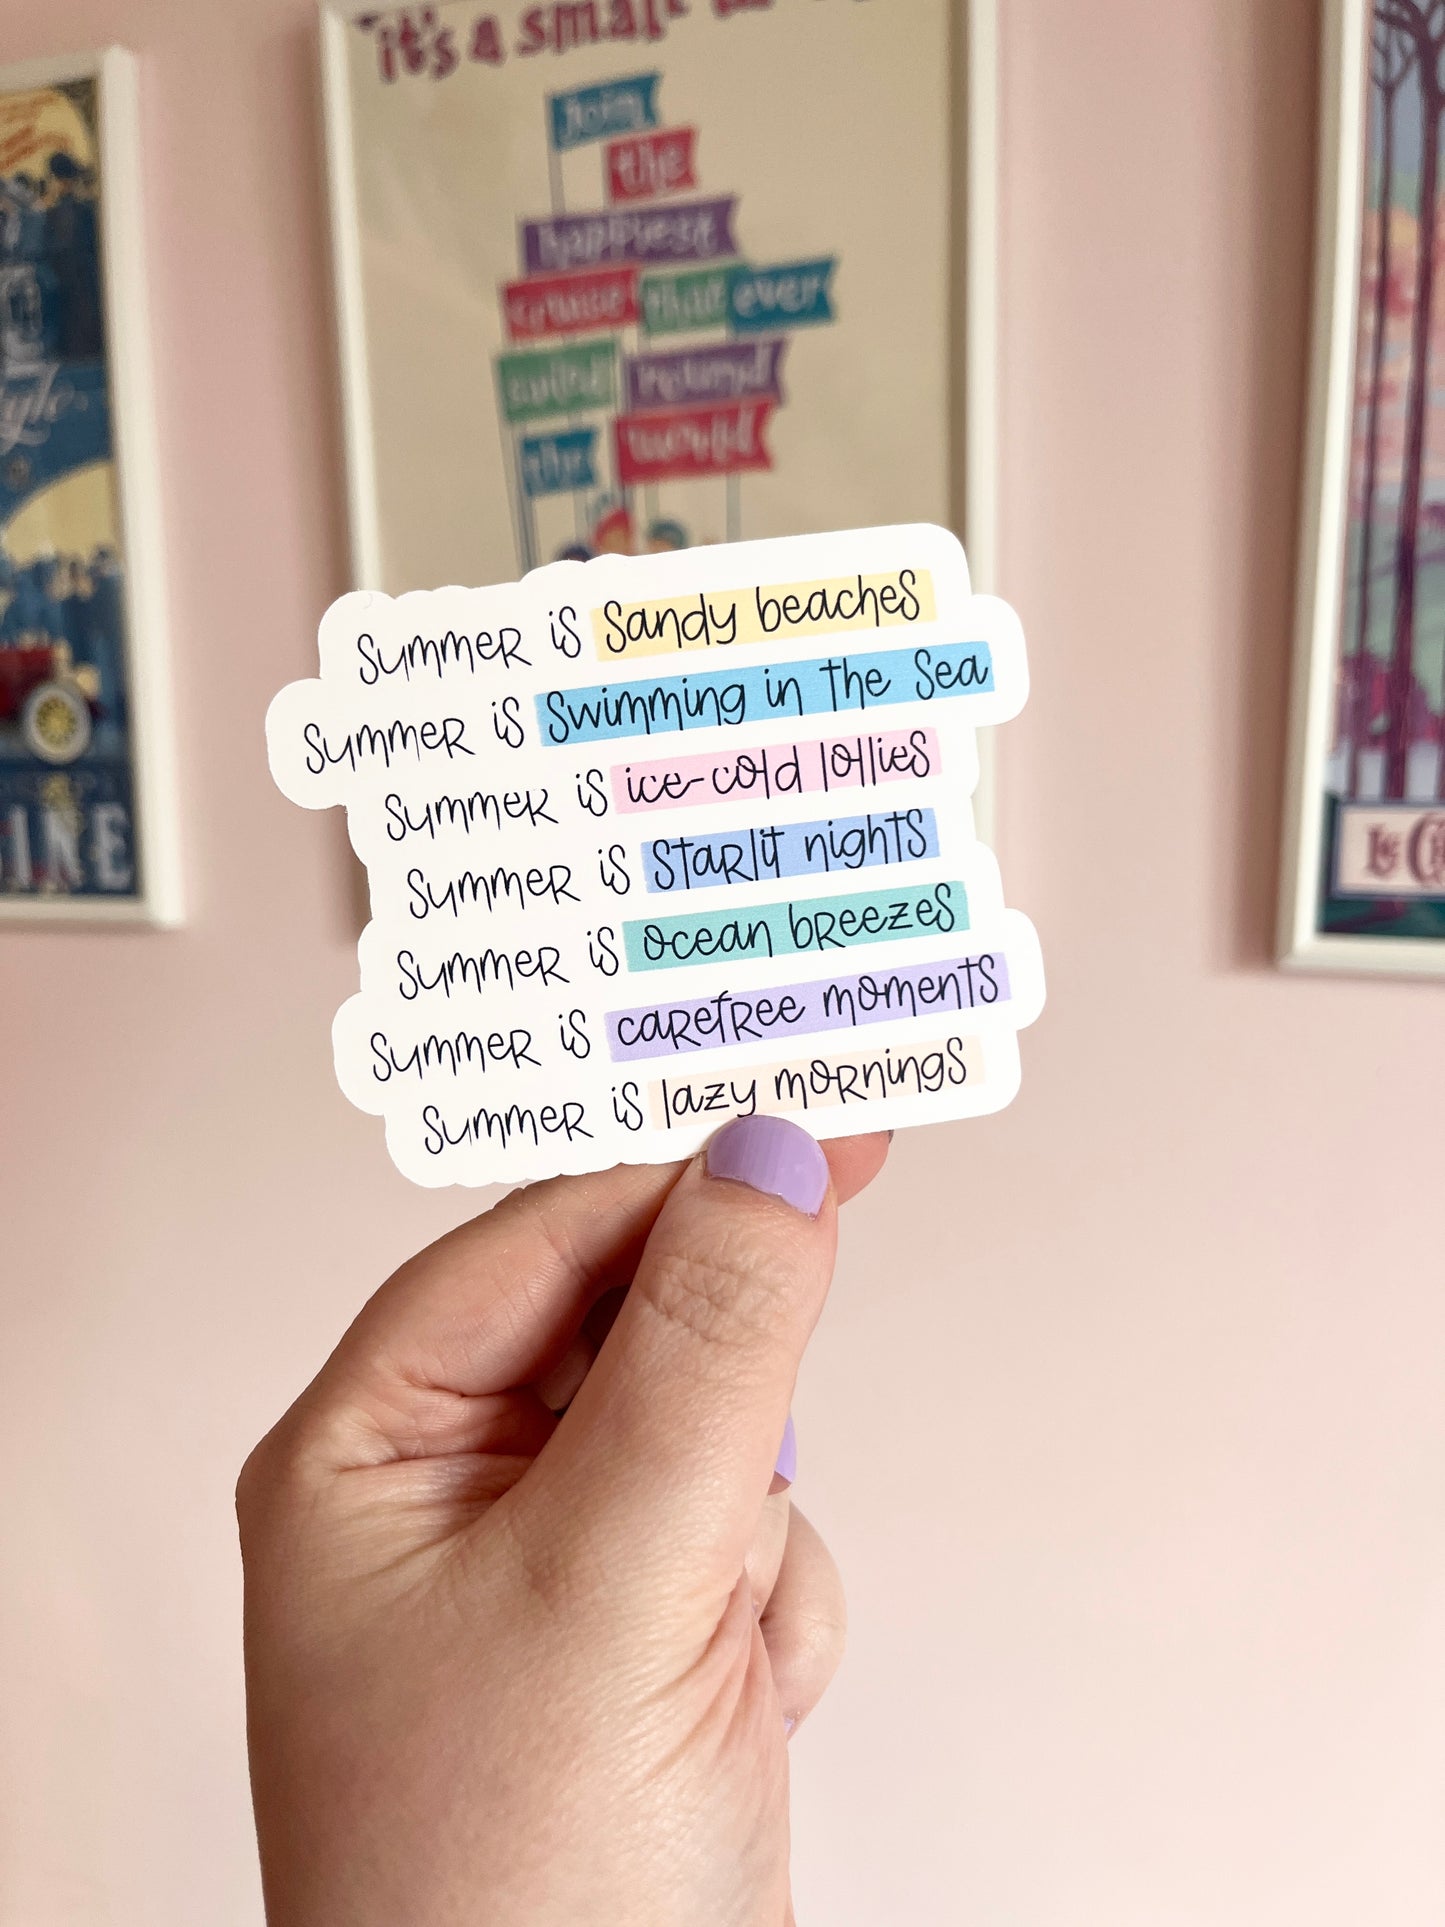 it's a small
Join
the
happiest
cruise that ever
sailed round
the world
Summer is sandy beaches
Summer is swimming in the sea
Summer is ice-cold lollies
Summer is starlit nights
Summer is ocean breezes
Summer is carefree moments
Summer is lazy mornings